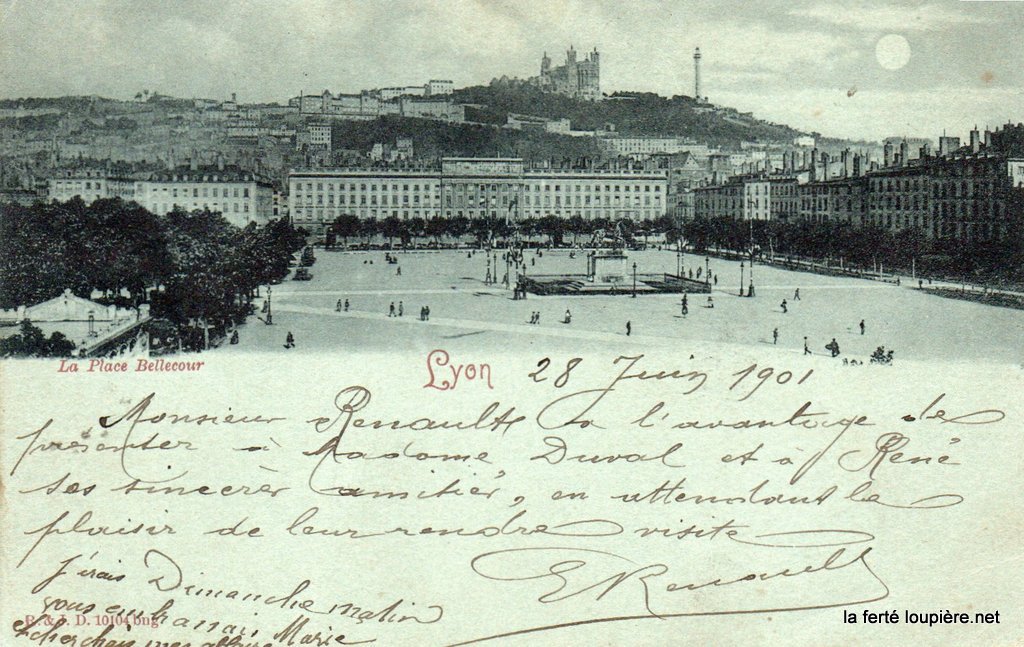 La Place Bellecour
Lyon 28 Juin 1901
Monsieur Renault a l'avantage de
présenter à Madame Duval et à René
ses sincèrès amitiés, en attendant le
plaisir de leur rendre visite
E Renault
J'irais Dimanche matin
vous
R. & J. D. 10104 bng
Marie
la ferté loupière.net